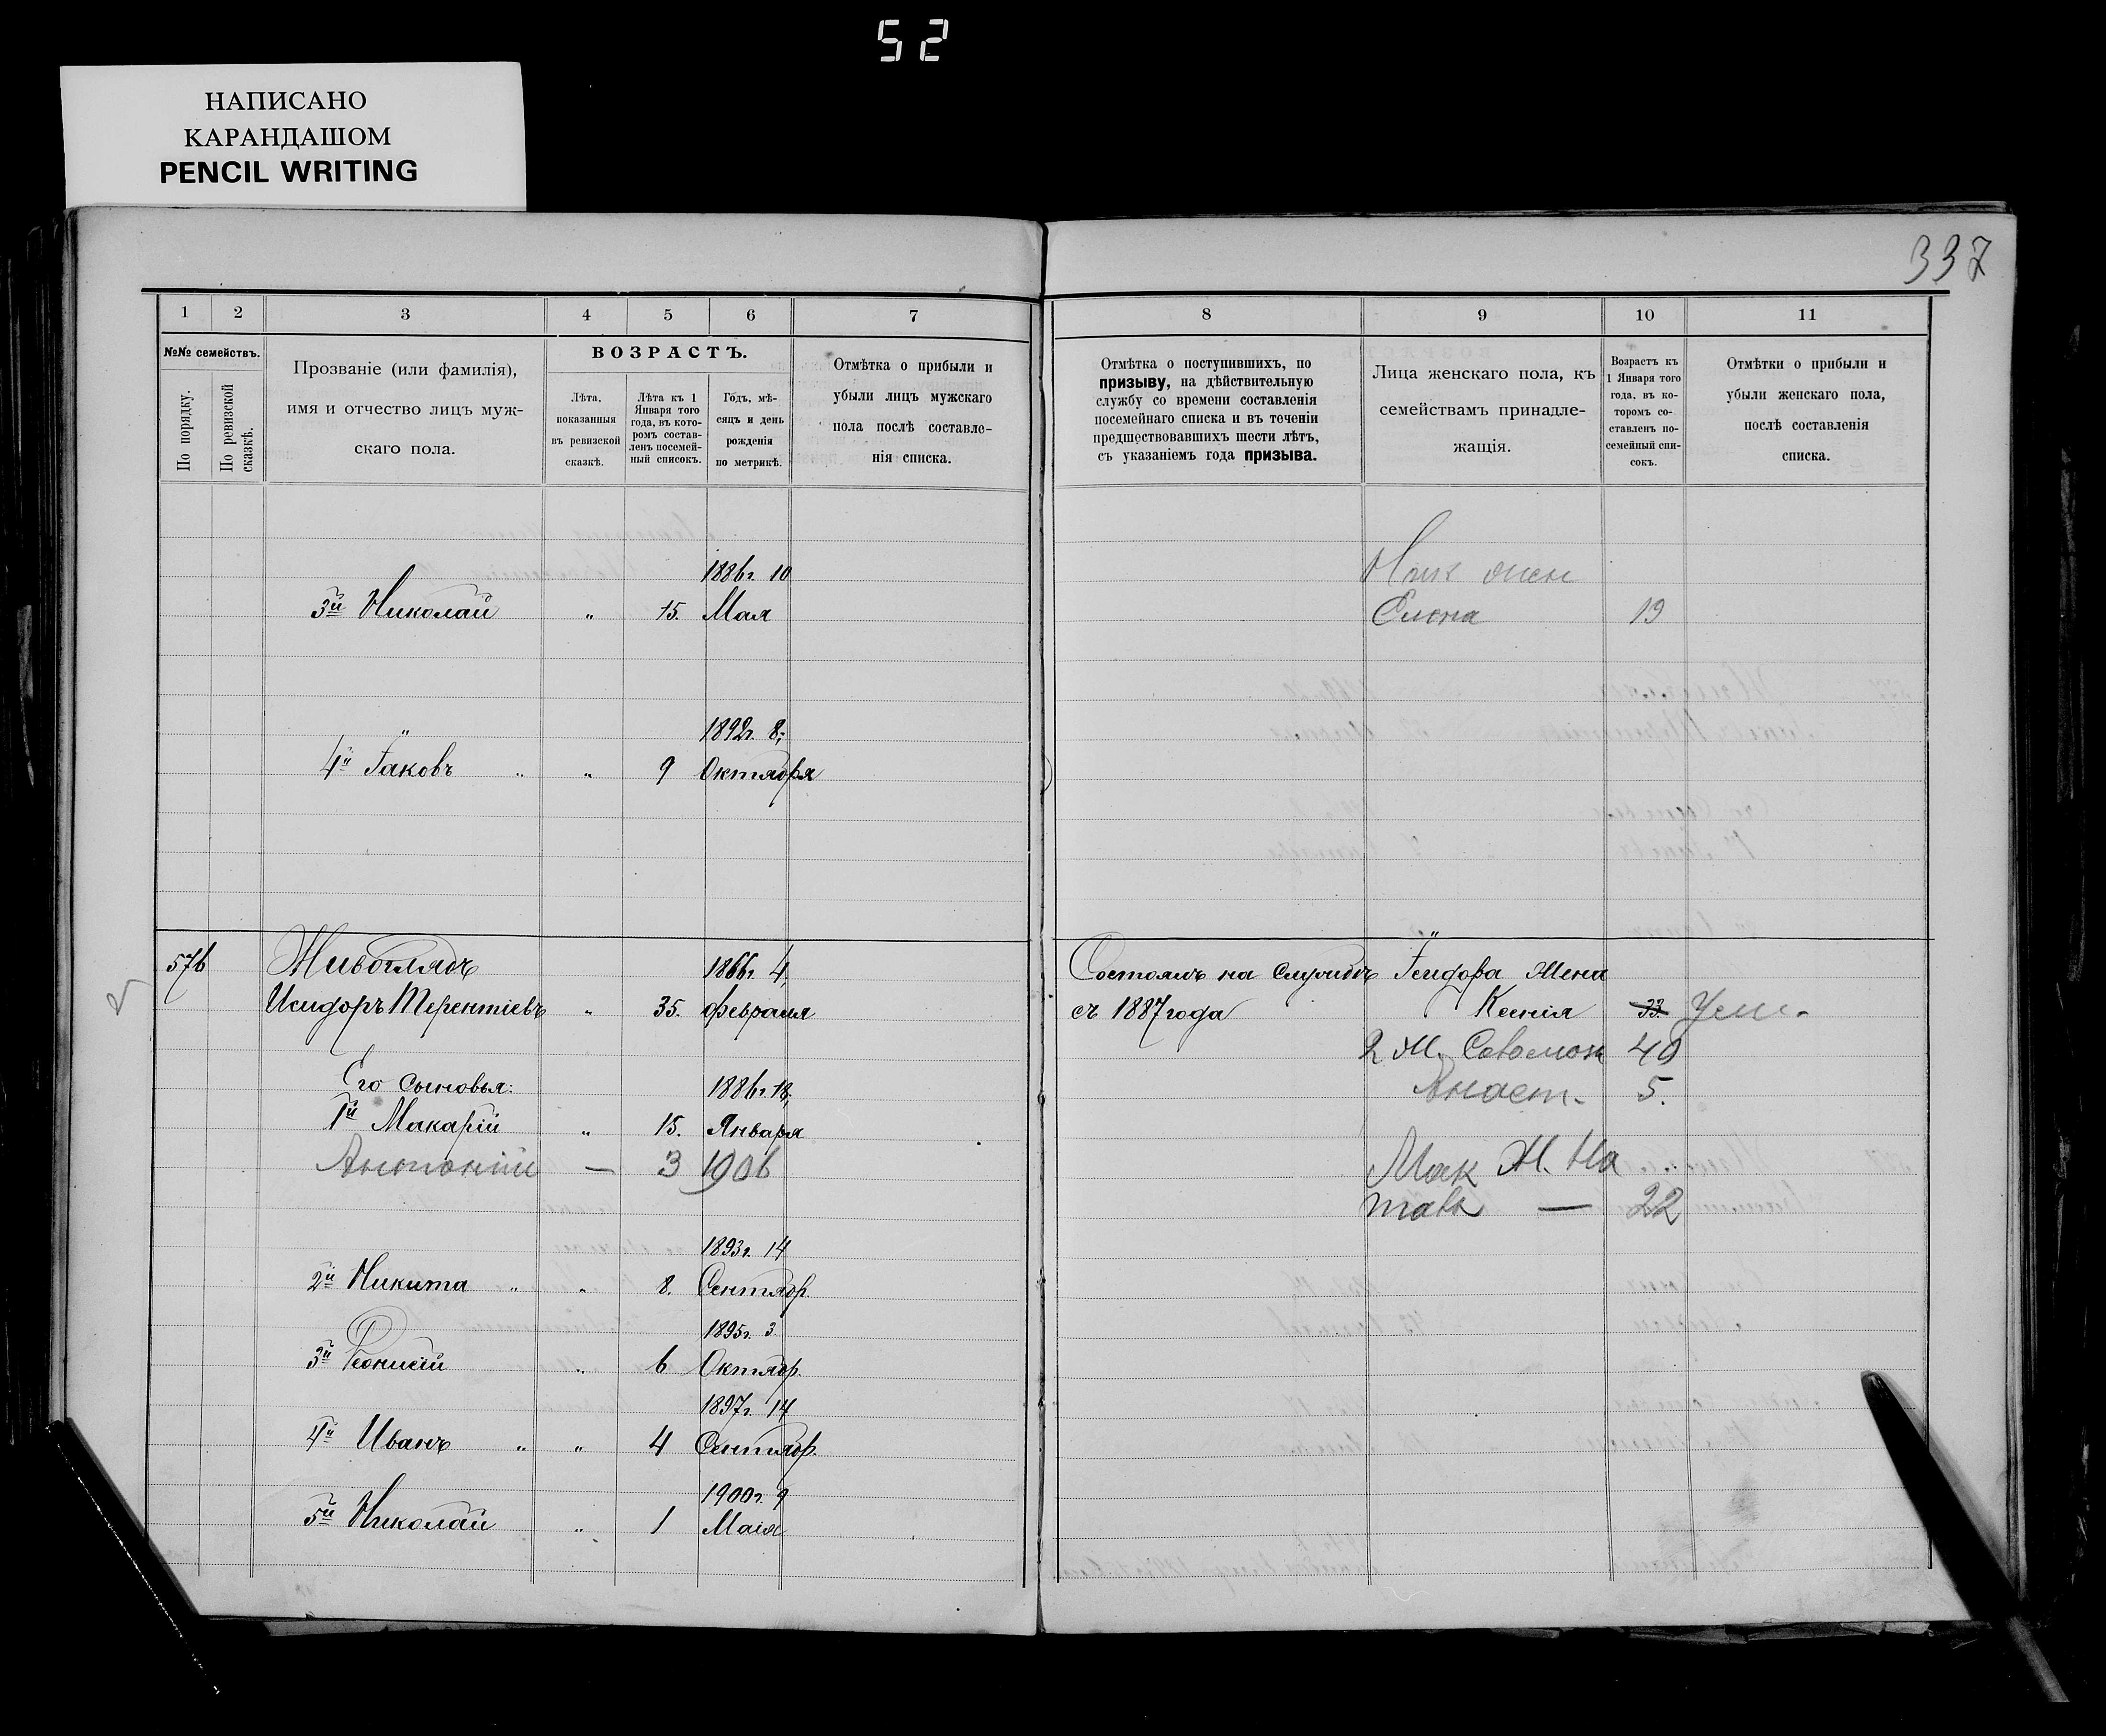 52
НАПИСАНО
КАРАНДАШОМ
PENCIL WRITING
337
1 2 3 4 5 6 7
№№ семействъ.
По порядку.
По ревизской сказкѣ.
Прозваніе (или фамилія),
имя и отчество лицъ муж-
скаго пола.
ВОЗРАСТЪ.
Лѣта,
показанныя
въ ревизской
сказкѣ.
Лѣта къ 1
Января того
года, въ кото-
ромъ состав-
ленъ посемей-
ный списокъ.
Годъ, мѣ-
сяцъ и день
рожденія
по метрикѣ.
Отмѣтка о прибыли и
убыли лицъ мужскаго
пола послѣ составле-
нія списка.
8 9 10 11
Отмѣтка о поступившихъ, по
призыву, на дѣйствительную
службу со времени составленія
посемейнаго списка и въ теченіи
предшествовавшихъ шести лѣтъ,
съ указаніемъ года призыва.
Лица женскаго пола, къ
семействамъ принадле-
жащія.
Возрастъ къ
1 Января того
года, въ ко-
торомъ со-
ставленъ по-
семейный спи-
сокъ.
Отмѣтки о прибыли и
убыли женскаго пола,
послѣ составленія
списка.
1886г. 10
3й Николай " 15. Мая
Ник жен
Елена 19
" 1892г. 8,
4й Іаковъ " " 9 Октября
576 Живоглядъ 1866г. 4,
Исидоръ Терентіевъ " 35. февраля
Состоитъ на службѣ
съ 1887 года
"
Ісидора жена
Ксенія 33. Ум.
2 ж. 40
Анаст. 5.
Его сыновья: 1886г. 18,
1й Макарій " 15. Января
Антоній — 3 1906
Мак Ж. На
талк — 22
1893г. 14
2й Никита " " 8. Сентябр.
1895г. 3
3й " 6 Октябр.
1897г. 14
4й Иванъ " " 4 Сентябр.
1900г. 9
5й Николай " 1 Маія